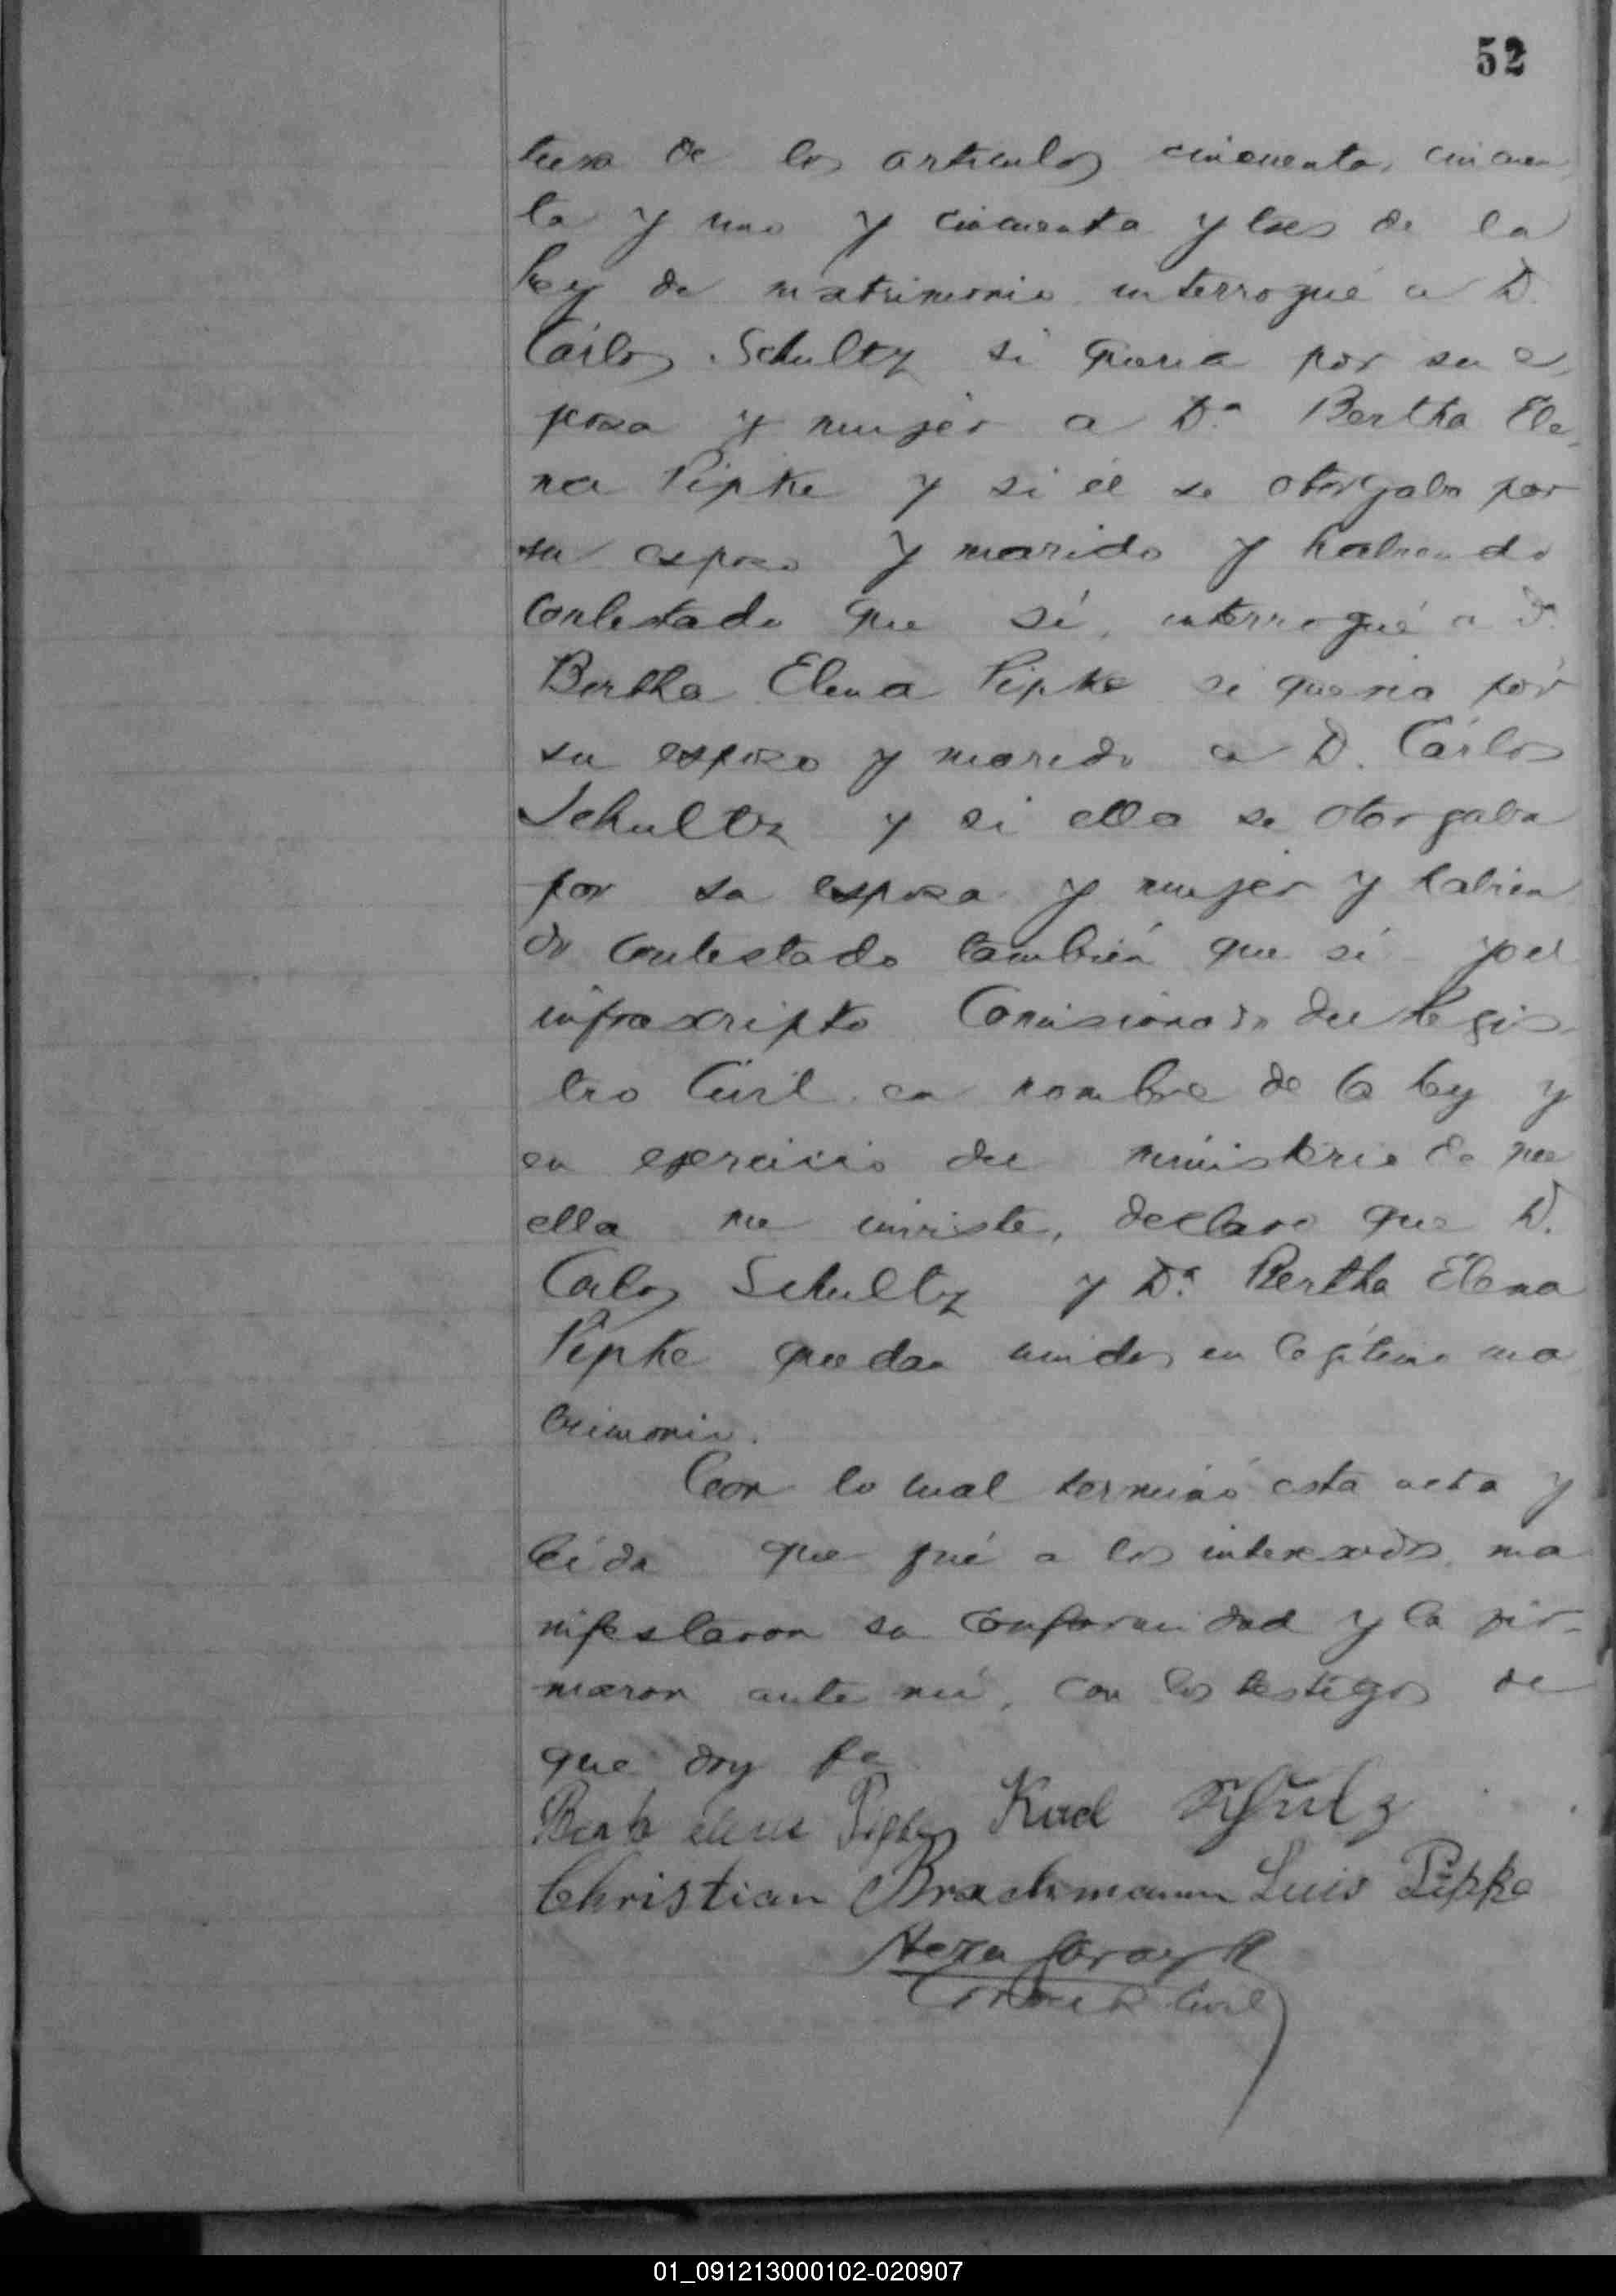 52
tura de los articulos cincuenta, cincuen
ta y uno y cincuenta y tres de la
ley de matrimonio interrogué a D.
Cárlos Schultz si queria por su es
posa y mujer a Dª Bertha Ele
na Pipke y si él se otorgaba por
su esposo y marido y habiendo
contestado que sí, interrogué a Dª
Bertha Elena Pipke si queria por
su esposo y marido a D. Cárlos
Schultz y si ella se otorgaba
por su esposa y mujer y habien
do contestado también que sí yo el
infrascripto Comisionado del Regis
tro Civil en nombre de la ley y
en ejercicio del ministerio de que
ella me inviste, declaro que D.
Carlos Schultz y Dª Bertha Elena
Pipke quedan unidos en legítimo ma
trimonio.
Con lo cual terminó esta acta y
leída que fué a los interesados, ma
nifestaron su conformidad y la fir-
maron ante mí, con los testigos de
que doy fe
Karl Schulz
Christian Brachmann Luis Pipke
Civil
01_091213000102-020907